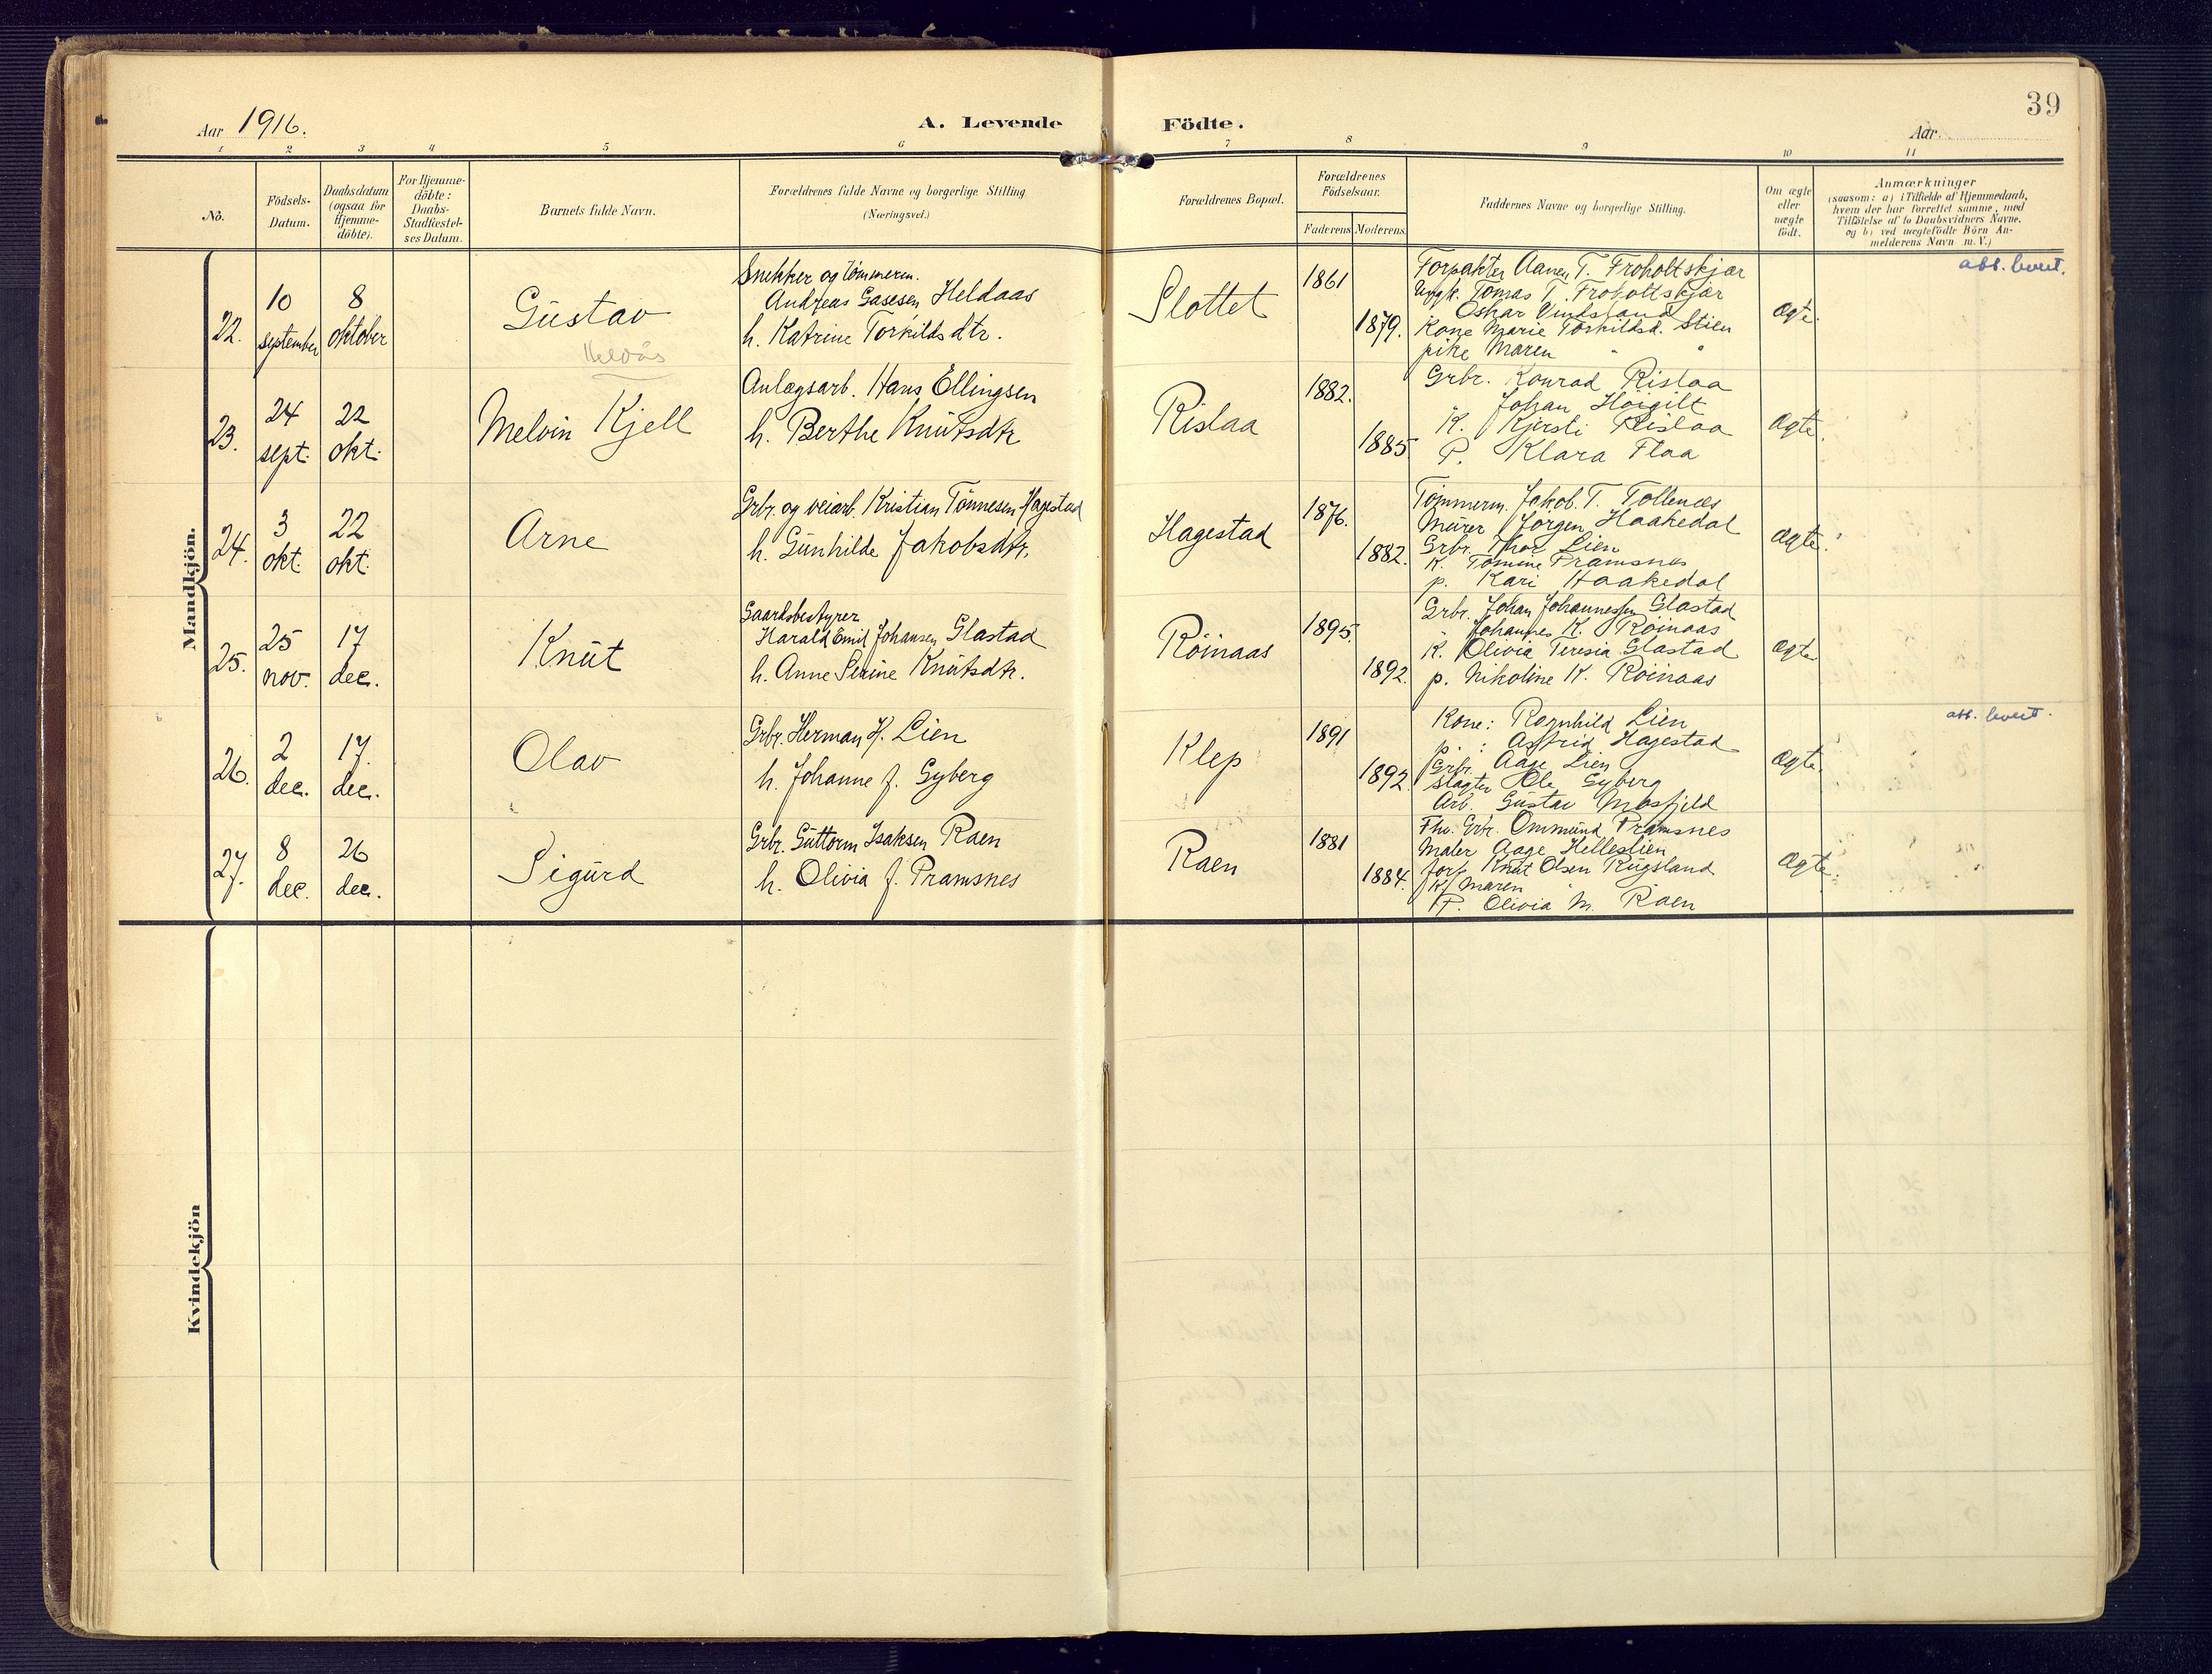 39
Aar 1916.
A. Levende Födte.
Aar
1 2 3 4 5 6 7 8 9 10 11
No.
Födsels-
Datum.
Daabsdatum
(ogsaa for
Hjemme-
döbte).
For Hjemme-
döbte:
Daabs-
Stadfæstel-
ses Datum.
Barnets fulde Navn.
Forældrenes fulde Navne og borgerlige Stilling
(Næringsvei.)
Forældrenes Bopæl.
Forældrenes
Födselsaar.
Faderens Moderens.
Faddernes Navne og borgerlige Stilling.
Om ægte
eller
uægte
födt.
Anmærkninger
(saasom: a) i Tilfælde af Hjemmedaab,
hvem der har forrettet samme, med
Tilföielse af to Daabsvidners Navne.
og b) ved uægtefödte Börn An-
melderens Navn m. V.)
Mandkjön.
22.
10
september
8
oktober
Gustav
Heldås
Snekker og tømmerm.
Andreas Gasesen Heldaas
h. Katrine Torkildsdtr.
Slottet
1861
1879.
Forpakter Aanen T. Froholtskjær
Ungk. Tomas T. Froholtskjær
Oskar Vindsland
Kone Marie Torkildsd. Stien
pike Maren " "
ægte.
att. levert.
23.
24
sept.
22
okt.
Melvin Kjell
Anlægsarb. Hans Ellingsen
h. Berthe Knutsdtr
Rislaa
1882.
1885.
Grbr. Konrad Rislaa
" Johan Høigilt
K. Kjersti Rislaa
P. Klara Flaa
ægte.
24.
3
okt.
22
okt.
Arne
Grbr. og veiarb. Kristian Tønnesen Hagestad
h. Gunhilde Jakobsdtr.
Hagestad
1876.
1882.
Tømmerm. Jakob T. Tollenæs
Murer Jørgen Haakedal
Grbr. Thor Lien
K. Tomine Pramsnes
p. Kari Haakedal
ægte.
25.
25
nov.
17
dec.
Knut
Gaardsbestyrer
Harald Emil Johansen Glastad
h. Anne Serine Knutsdtr.
Röinaas
1895.
1892.
Grbr. Johan Johannessen Glastad
" Johannes K. Röinaas
K. Olivia Teresia Glastad
p. Nikoline K. Röinaas
ægte
26.
2
dec.
17.
dec.
Olav
Grbr. Herman H. Lien
h. Johanne J. Gyberg
Klep
1891
1892.
Kone: Ragnhild Lien
p. : Astrid Hagestad
Grbr. Aage Lien
Slagter Ole Gyberg
Arb. Gustav Mosfjeld
ægte.
att. levert.
27.
8
dec.
26
dec.
Sigurd
Grbr. Guttorm Isaksen Raen
h. Olivia J. Pramsnes
Raen
1881
1884.
Fhv. Grbr. Ommund Pramsnes
Maler Aage Helleslien
forp. Knut Olsen Rugsland
K. Maren "
P. Olivia M. Raen
ægte.
Kvindekjön